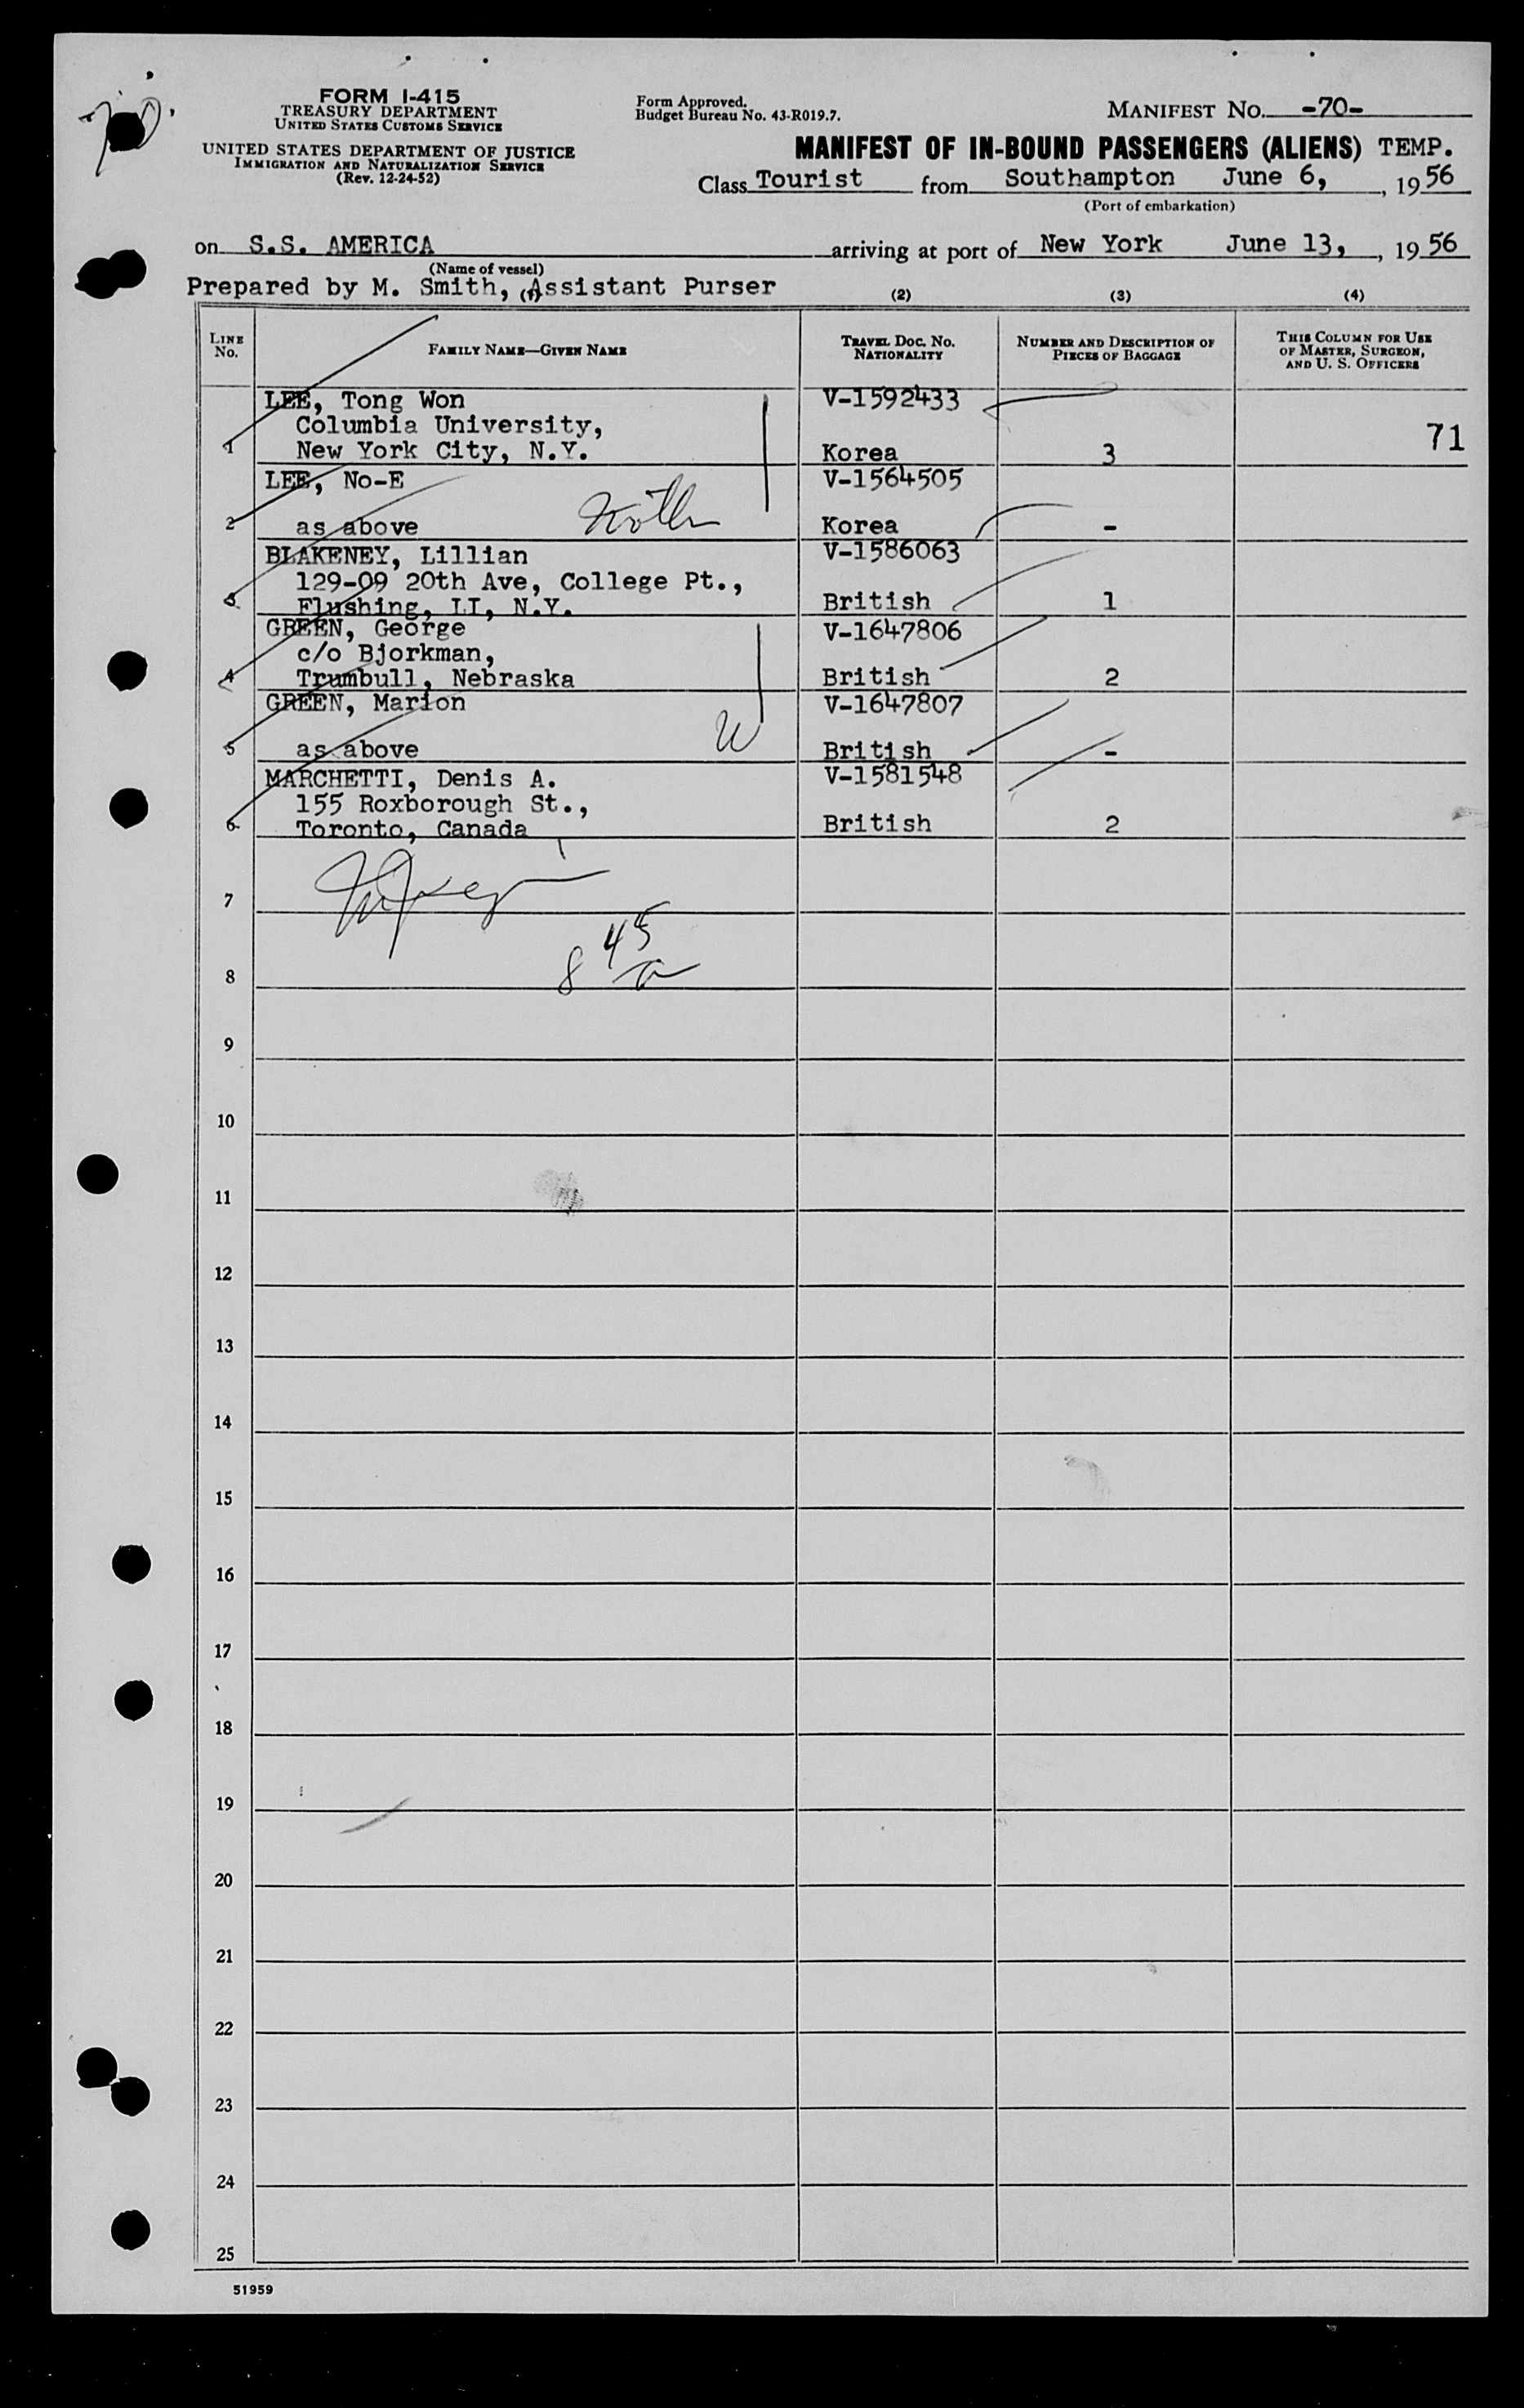 70.
FORM I-415
TREASURY DEPARTMENT
UNITED STATES CUSTOMS SERVICE
UNITED STATES DEPARTMENT OF JUSTICE
IMMIGRATION AND NATURALIZATION SERVICE
(Rev. 12-24-52)
Form Approved.
Budget Bureau No. 43-R019.7.
MANIFEST NO. -70-
MANIFEST OF IN-BOUND PASSENGERS (ALIENS) TEMP.
Class Tourist from Southampton June 6, , 1956
(Port of embarkation)
on S.S. AMERICA arriving at port of New York June 13, , 1956
(Name of vessel)
Prepared by M. Smith, Assistant Purser
(1) (2) (3) (4)
LINE No. FAMILY NAME—GIVEN NAME TRAVEL DOC. NO. NATIONALITY NUMBER AND DESCRIPTION OF PIECES OF BAGGAGE THIS COLUMN FOR USE OF MASTER, SURGEON, AND U. S. OFFICERS
LEE, Tong Won V-1592433
Columbia University,
1 New York City, N.Y. Korea 3 71
LEE, No-E V-1564505
2 as above Korea -
BLAKENEY, Lillian V-1586063
129-09 20th Ave, College Pt.,
3 Flushing, LI, N.Y. British 1
GREEN, George V-1647806
c/o Bjorkman,
4 Trumbull, Nebraska British 2
GREEN, Marion V-1647807
5 as above W British -
MARCHETTI, Denis A. V-1581548
155 Roxborough St.,
6 Toronto, Canada British 2
7
8 45
8
9
10
11
12
13
14
15
16
17
18
19
20
21
22
23
24
25
51959